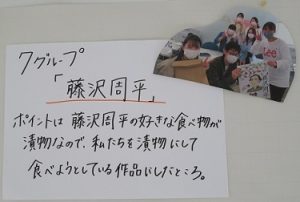 7グループ
「藤沢周平」
ポイントは藤沢周平の好きな食べ物が
漬物なので、私たちを漬物にして
食べようとしている作品にしたところ。
Lee